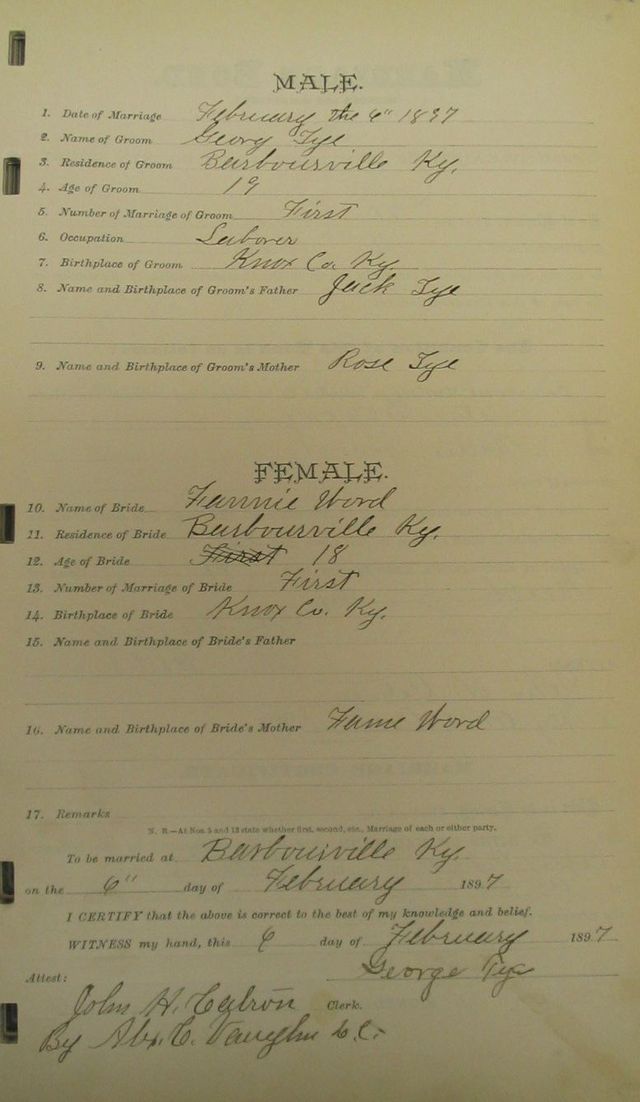 MALE.
1. Date of Marriage February the 6" 1897
2. Name of Groom Georg Tye
3. Residence of Groom Barbourville Ky.
4. Age of Groom 19
5. Number of Marriage of Groom First
6. Occupation Laborer
7. Birthplace of Groom Knox Co. Ky
8. Name and Birthplace of Groom's Father Jack Tye
9. Name and Birthplace of Groom's Mother Rose Tye
FEMALE.
10. Name of Bride Fannie Word
11. Residence of Bride Barbourville Ky.
12. Age of Bride First 18
13. Number of Marriage of Bride First
14. Birthplace of Bride Knox Co. Ky.
15. Name and Birthplace of Bride's Father
16. Name and Birthplace of Bride's Mother Word
17. Remarks
N. B.—At Nos. 5 and 13 state whether first, second, etc., Marriage of each or either party.
To be married at Barbourville Ky.
on the 6" day of February 1897
I CERTIFY that the above is correct to the best of my knowledge and belief.
WITNESS my hand, this 6 day of February 1897
George Tye
Attest:
John H. Catron Clerk.
By C. Vaughn D.C.